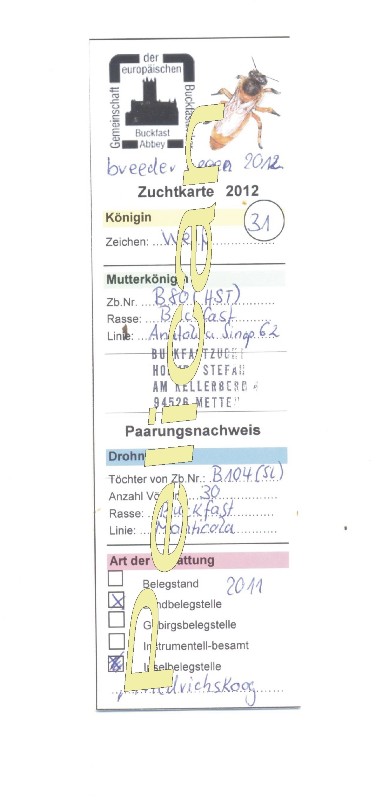 Gemeinschaft der europäischen
Buckfast
Abbey
breeder 2012
Zuchtkarte 2012
Königin
31
Zeichen:
Mutterkönigin
Zb.Nr. B80(HST)
Rasse: Buckfast
Linie: Anatolica Sinop 62
BUCKFASTZUCHT
STEFAN
AM KELLERBERG
94526 METTEN
Paarungsnachweis
Drohn
Töchter von Zb.Nr.: B104(SL)
Anzahl Völ 30
Rasse: Buckfast
Linie: Monticola
Art der Begattung
Belegstand 2011
Landbelegstelle
Gebirgsbelegstelle
Instrumentell-besamt
Inselbelegstelle
Friedrichskoog
Pelicean